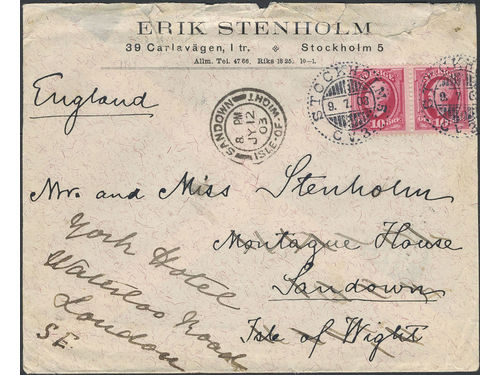 ERIK STENHOLM
39 Carlavägen, I tr. Stockholm 5
Allm. Tel. 47 66. Riks 18 25. 10–1.
England
STOCKHOLM
9. 7. 03
SVERIGE
10 ÖRE
SANDOWN
8 PM
JY 12
03
ISLE-OF-WIGHT
Mr. and Miss Stenholm
Montague House
Sandown
Isle of Wight
York Hotel
Waterloo Road
London
S.E.